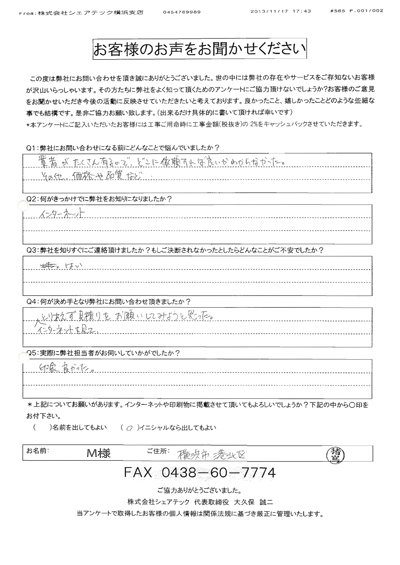 From:株式会社シェアテック横浜支店 0454769980 2013/11/17 17:43 #565 P.001/002
お客様のお声をお聞かせください
この度は弊社にお問い合わせを頂き誠にありがとうございました。世の中には弊社の存在やサービスをご存知ないお客様
が沢山いらっしゃいます。その方たちに弊社をよく知って頂くためのアンケートにご協力頂けないでしょうか?お客様のご意見
をお聞かせいただき今後の活動に反映させていただきたいと考えております。良かったこと、嬉しかったことどのような些細な
事でも結構です。是非ご協力お願い致します。(出来るだけ具体的に書いて頂ければ幸いです)
*本アンケートにご記入いただいたお客様には工事ご用命時に工事金額(税抜き)の2%をキャッシュバックさせていただきます。
Q1:弊社にお問い合わせになる前にどんなことで悩んでいましたか?
業者がたくさん有るので、どこに依頼すれば良いかわからなかった。
その他、価格や品質など
Q2:何がきっかけで弊社をお知りになりましたか?
インターネット
Q3:弊社を知りすぐにご連絡頂けましたか?もしご決断されなかったとしたらどんなことがご不安でしたか?
はい
Q4:何が決め手となり弊社にお問い合わせ頂きましたか?
とりあえず見積りをお願いしてみようと思った。
インターネットを見て、
Q5:実際に弊社担当者がお伺いしていかがでしたか?
印象良かった。
*上記についてお願いがあります。インターネットや印刷物に掲載させて頂いてもよろしいでしょうか?下記の中から〇印を
お付下さい。
( )名前を出してもよい (〇)イニシャルなら出してもよい
お名前: M様 ご住所: 横浜市港北区
FAX 0438-60-7774
ご協力ありがとうございました。
株式会社シェアテック 代表取締役 大久保 誠二
当アンケートで取得したお客様の個人情報は関係法規に基づき厳正に管理いたします。